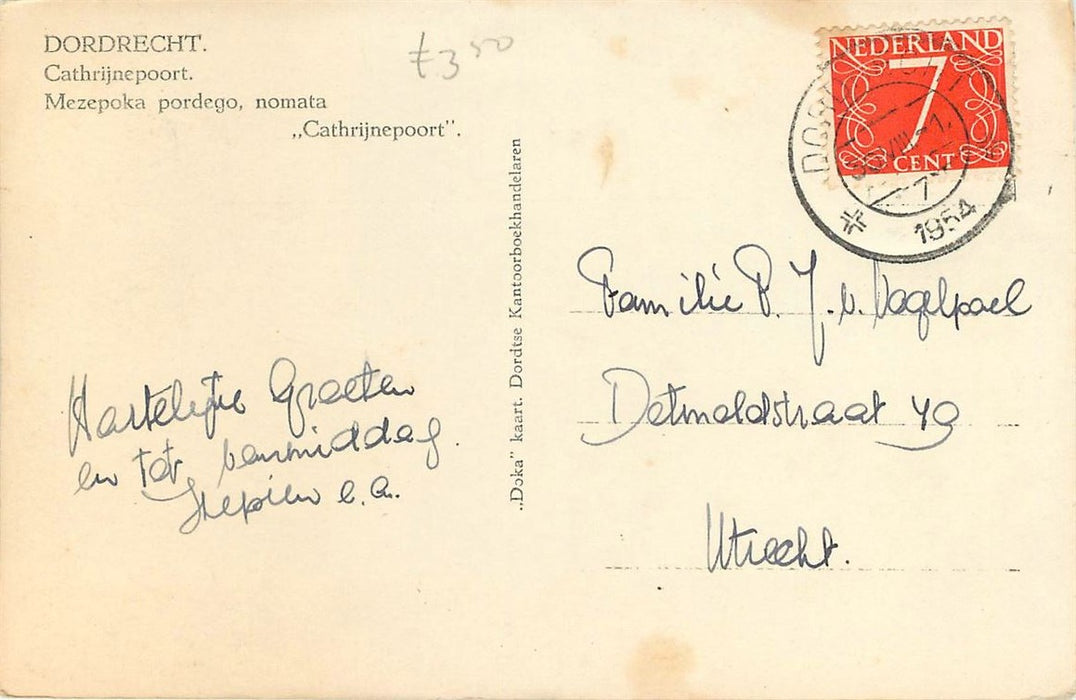 DORDRECHT.
Cathrijnepoort.
Mezepoka pordego, nomata
„Cathrijnepoort”.
ƒ 3 50
NEDERLAND
7
CENT
1954
„Doka” kaart. Dordtse Kantoorboekhandelaren
Familie P. J. v. Vogelpoel
Detmoldstraat 49
Utrecht.
Hartelijke Groeten
en tot vanmiddag.
e.a.